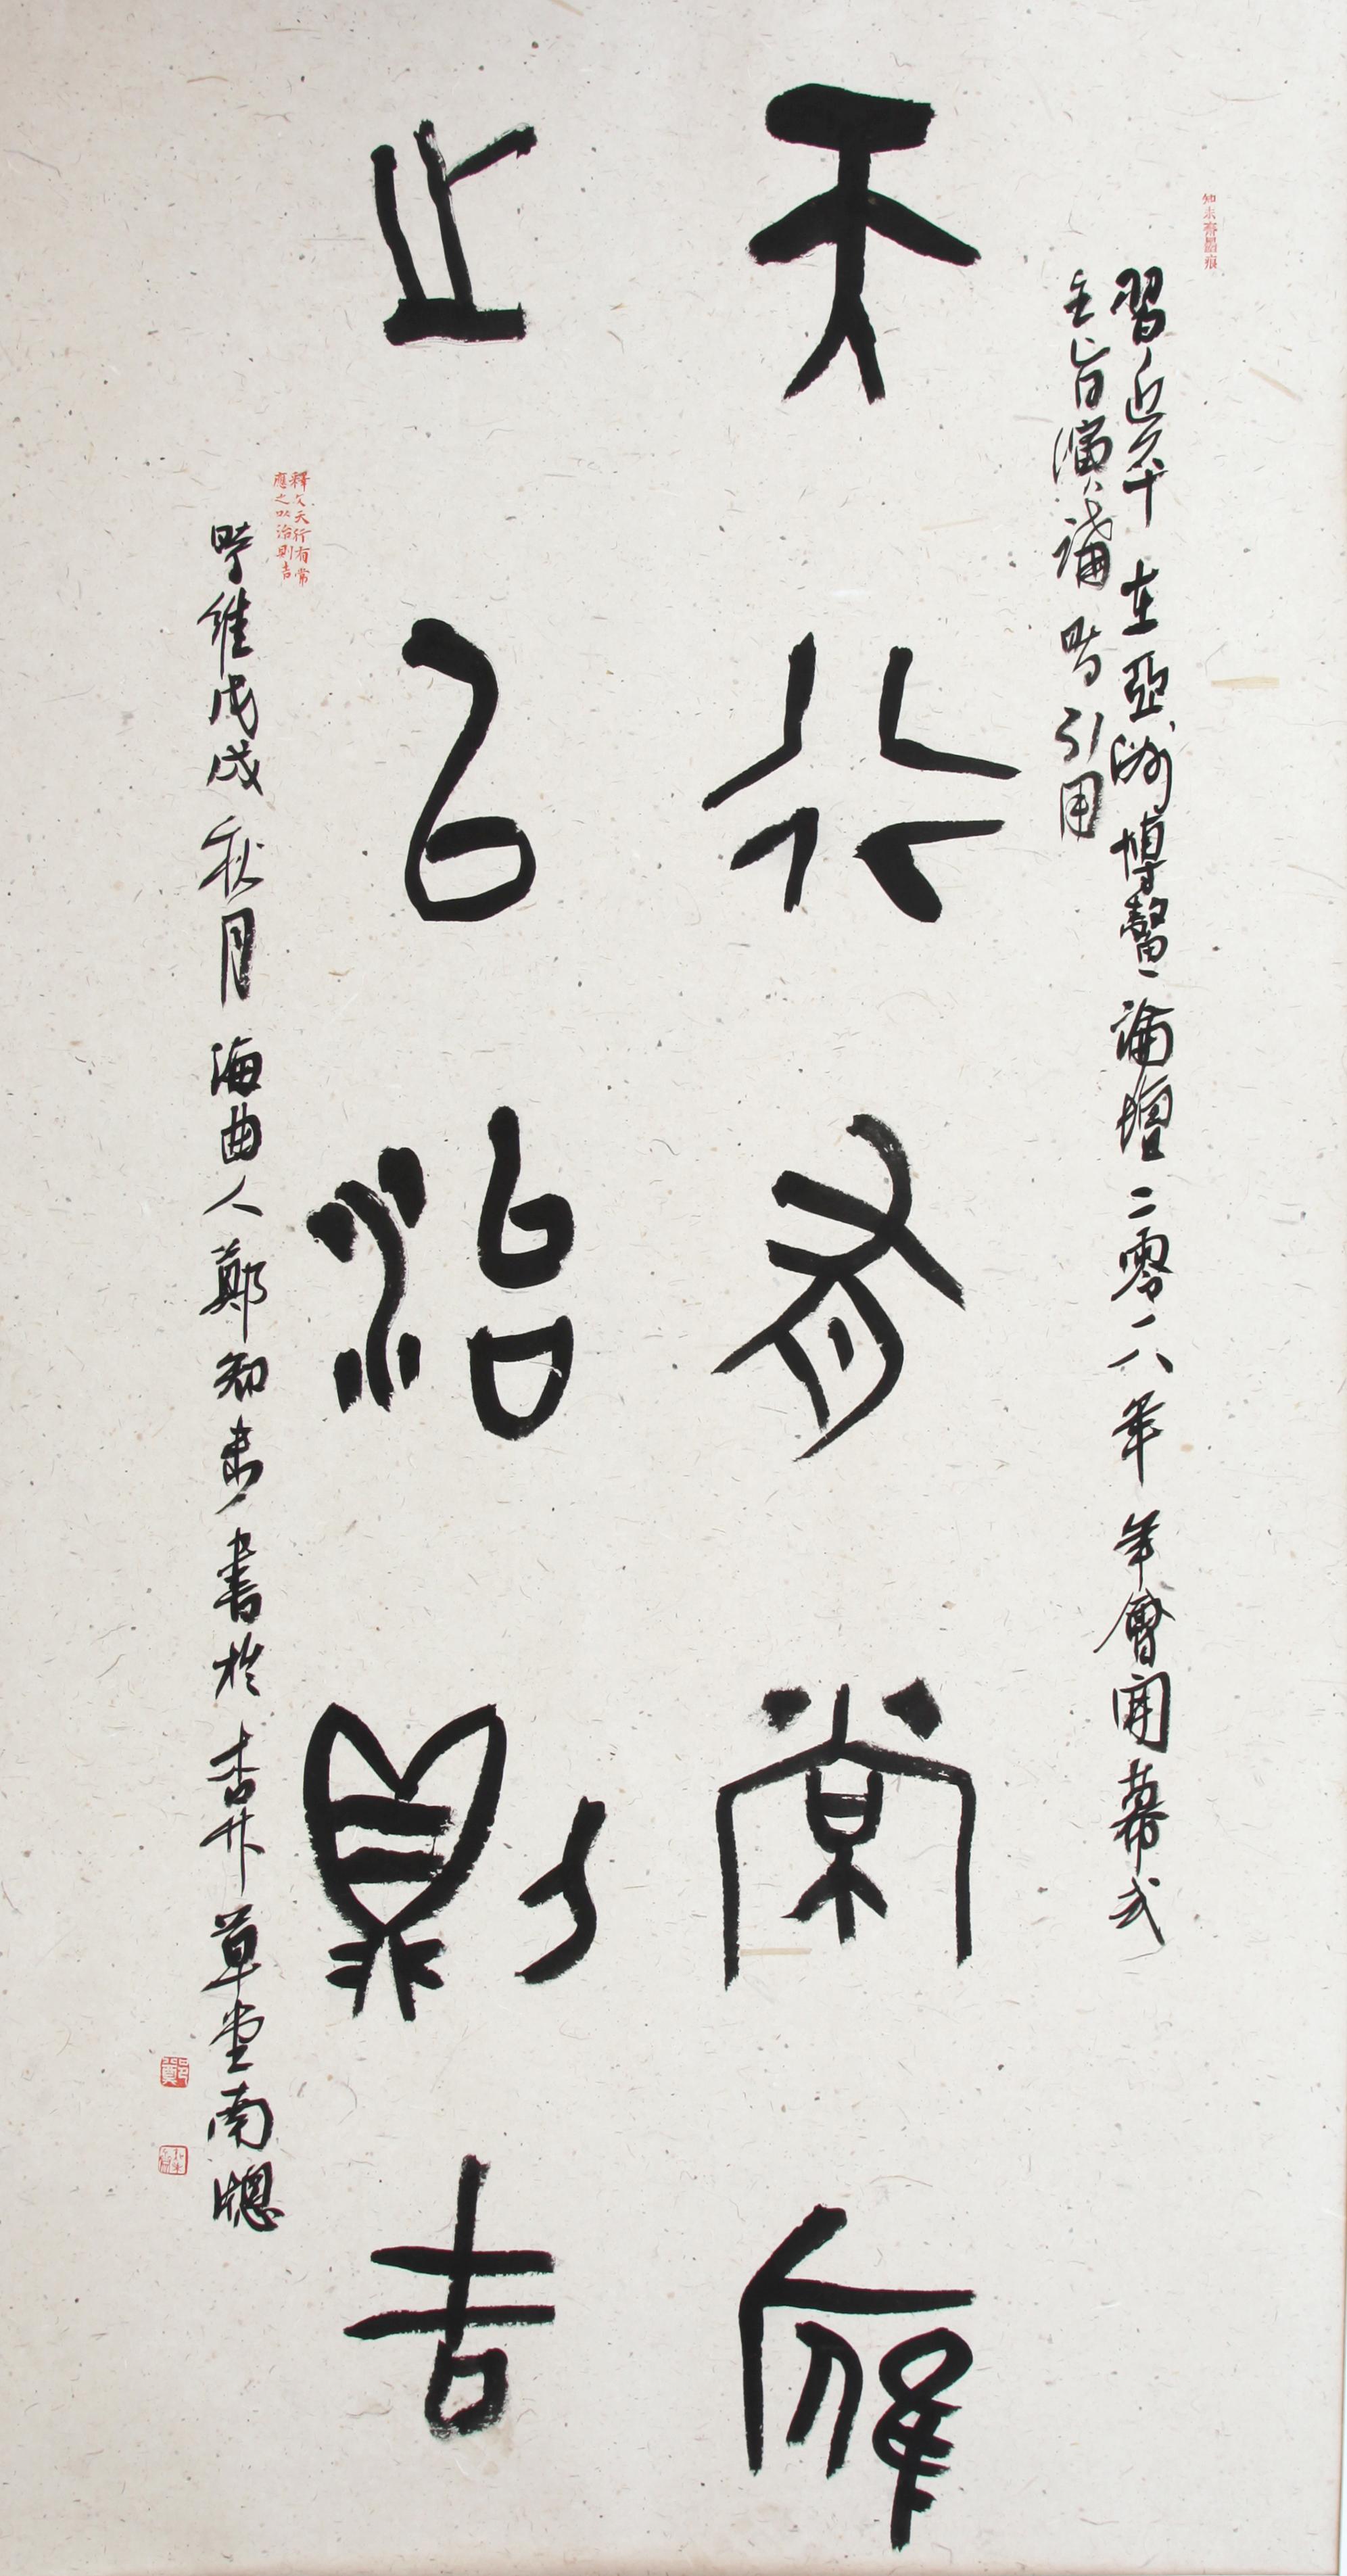 知未齋墨痕
習近平在亞洲博鰲論壇二零一八年年會開幕式
主旨演講時引用
天行有常應
之以治則吉
釋文天行有常
應之以治則吉
時維戊戌秋月海曲人鄭知未書於杏竹草堂南牕
鄭